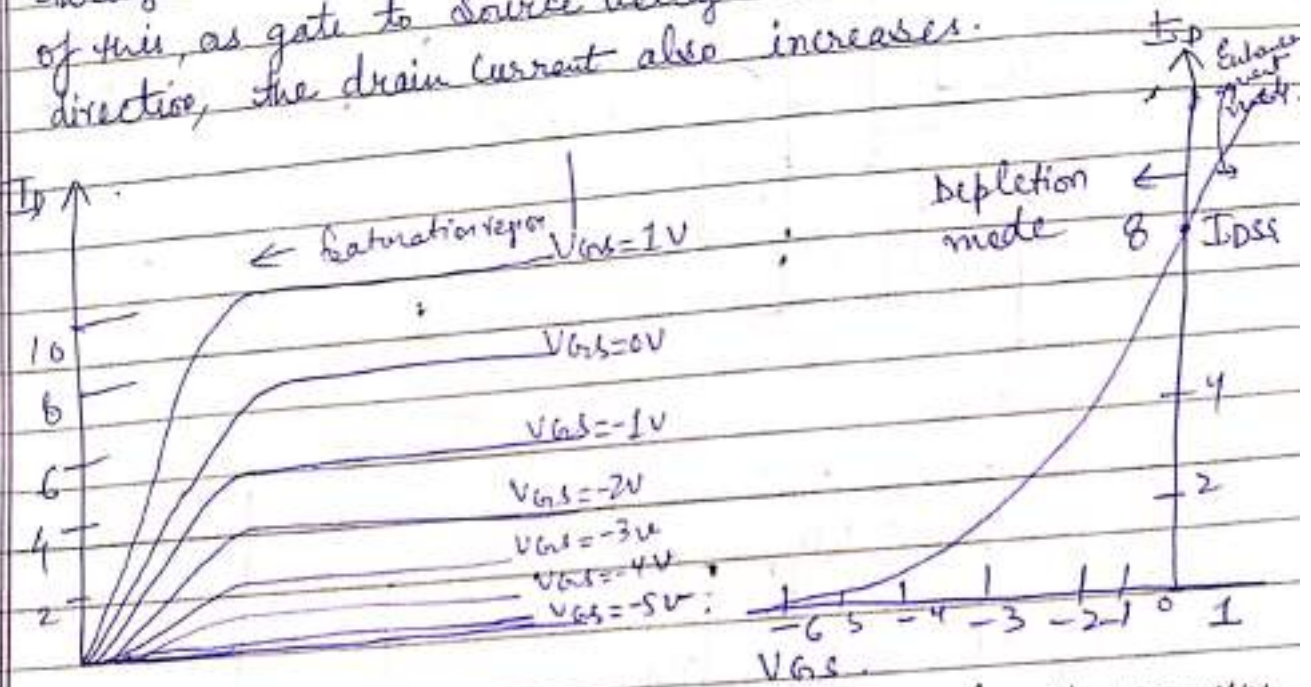 of this, as gate to source
direction, the drain current also increases.
ID
← Saturation region
VGS=1V
10
VGS=0V
8
VGS=-1V
6
VGS=-2V
4
VGS=-3V
VGS=-4V
2
VGS=-5V
ID
Depletion ←
mode 8 IDSS
4
2
-6 5 -4 -3 -2 -1 0 1
VGS.